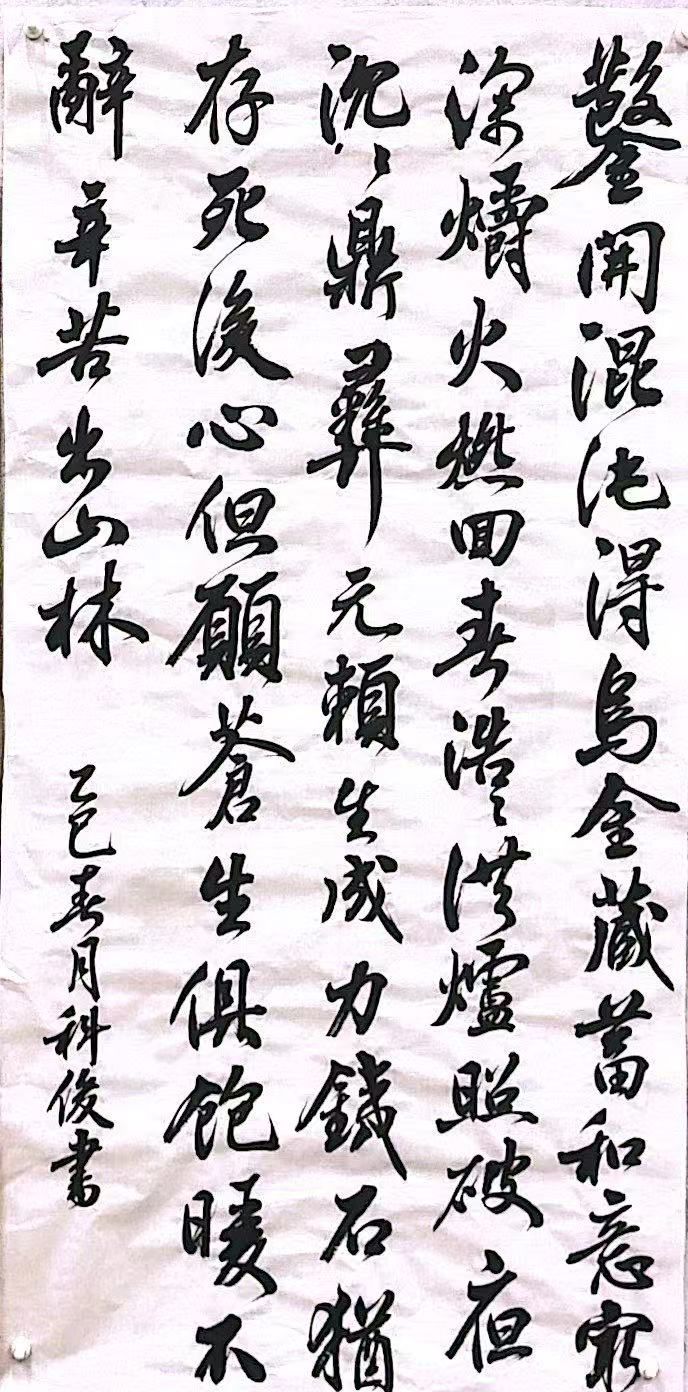 鑿開混沌得烏金藏蓄和意㝡
深爝火燃回春浩〻洪爐照破夜
沉〻鼎彝元賴生成力鐵石猶
存死後心但願蒼生俱飽暖不
辭辛苦出山林
乙巳春月科俊書